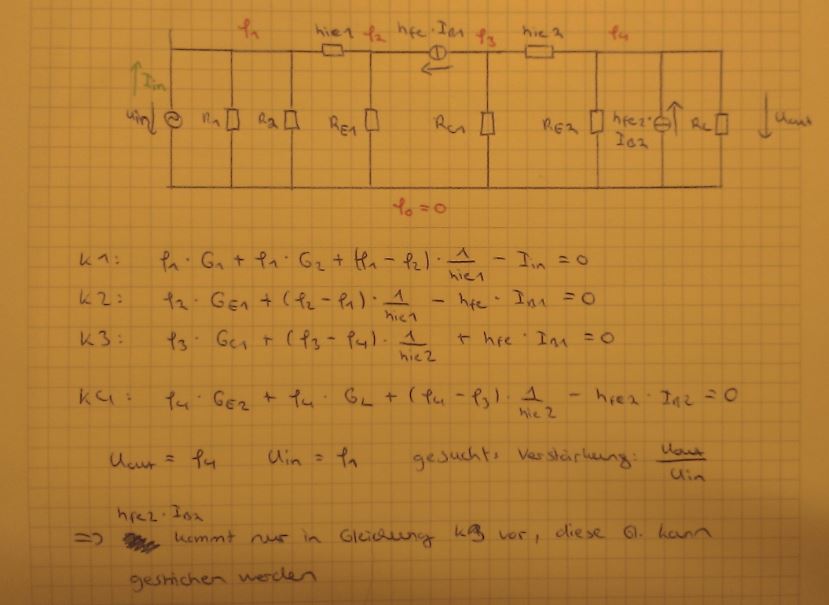 φ₁ hie1 φ₂ hfe·IB1 φ₃ hie2 φ₄
Iin
Uin R1 R2 RE1 RC1 RE2 hfe2· RL Uout
IB2
φ₀ = 0
K1: φ₁ · G₁ + φ₁ · G₂ + (φ₁ − φ₂) · 1/hie1 − Iin = 0
K2: φ₂ · GE1 + (φ₂ − φ₁) · 1/hie1 − hfe · IB1 = 0
K3: φ₃ · GC1 + (φ₃ − φ₄) · 1/hie2 + hfe · IB1 = 0
K4: φ₄ · GE2 + φ₄ · GL + (φ₄ − φ₃) · 1/hie2 − hfe2 · IB2 = 0
Uout = φ₄ Uin = φ₁ gesucht: Verstärkung: Uout/Uin
hfe2 · IB2
=> kommt nur in Gleichung K3 vor, diese Gl. kann
gestrichen werden